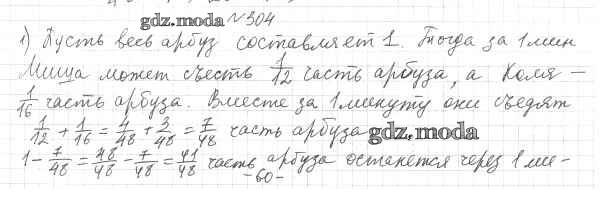 gdz.moda № 304
1) Пусть весь арбуз составляет 1. Тогда за 1 мин
Миша может съесть 1/12 часть арбуза, а Коля –
1/16 часть арбуза. Вместе за 1 минуту они съедят
1/12 + 1/16 = 4/48 + 3/48 = 7/48 часть арбуза gdz.moda
1 - 7/48 = 48/48 - 7/48 = 41/48 часть арбуза останется через 1 ми-
-60-